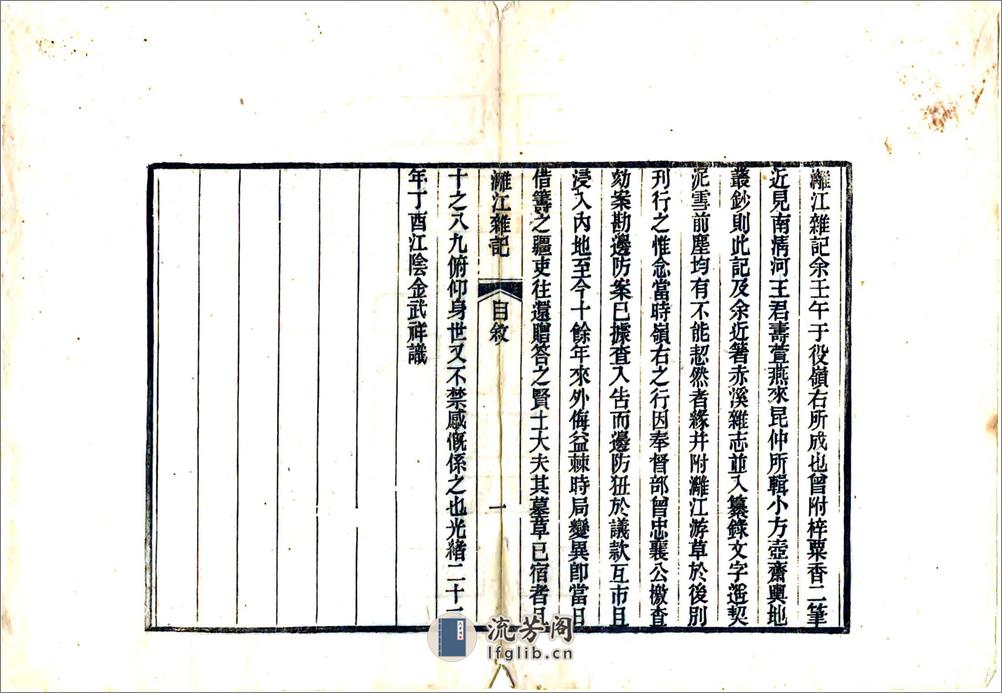 灕江雜記余壬午于役嶺右所成也曾附梓粟香二筆
近見南清河王君壽萱燕來昆仲所輯小方壺齋輿地
叢鈔則此記及余近箸赤溪雜志並入纂錄文字遙契
泥雪前塵均有不能恝然者緣幷附灕江游草於後別
刊行之惟念當時嶺右之行因奉督部曾忠襄公檄查
劾案勘邊防案已據查入告而邊防狃於議款互市且
浸入內地至今十餘年來外侮益棘時局變異卽當日
借籌之疆吏往還贈答之賢士大夫其墓草已宿者且
灕江雜記
自敘
一
十之八九俯仰身世又不禁感慨係之也光緒二十二
年丁酉江陰金武祥識
流芳阁
lfglib.cn